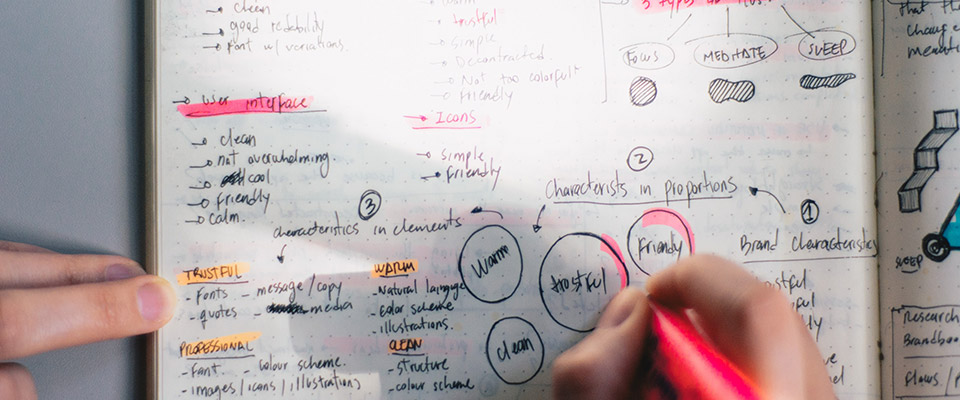 clean
good readability
font w/ variations.
user interface
clean
not overwhelming
cool
friendly
calm.
warm
trustful
simple
Decontracted.
Not too colorfult
friendly
Icons
simple
friendly
3 types
FOCUS
MEDITATE
SLEEP
2
Characterists in proportions
1
Brand Characteristics
3
characteristics in elements
Warm
trostful
Friendly
clean
TRUSTFUL
- Fonts
- message/copy
- quotes
- media
PROFESSIONAL
- Font
- colour scheme.
- images/icons/illustrations
WARM
- Natural language
- color scheme
- illustrations.
CLEAN
- structure
- colour scheme
that
change
SLEEP
Research